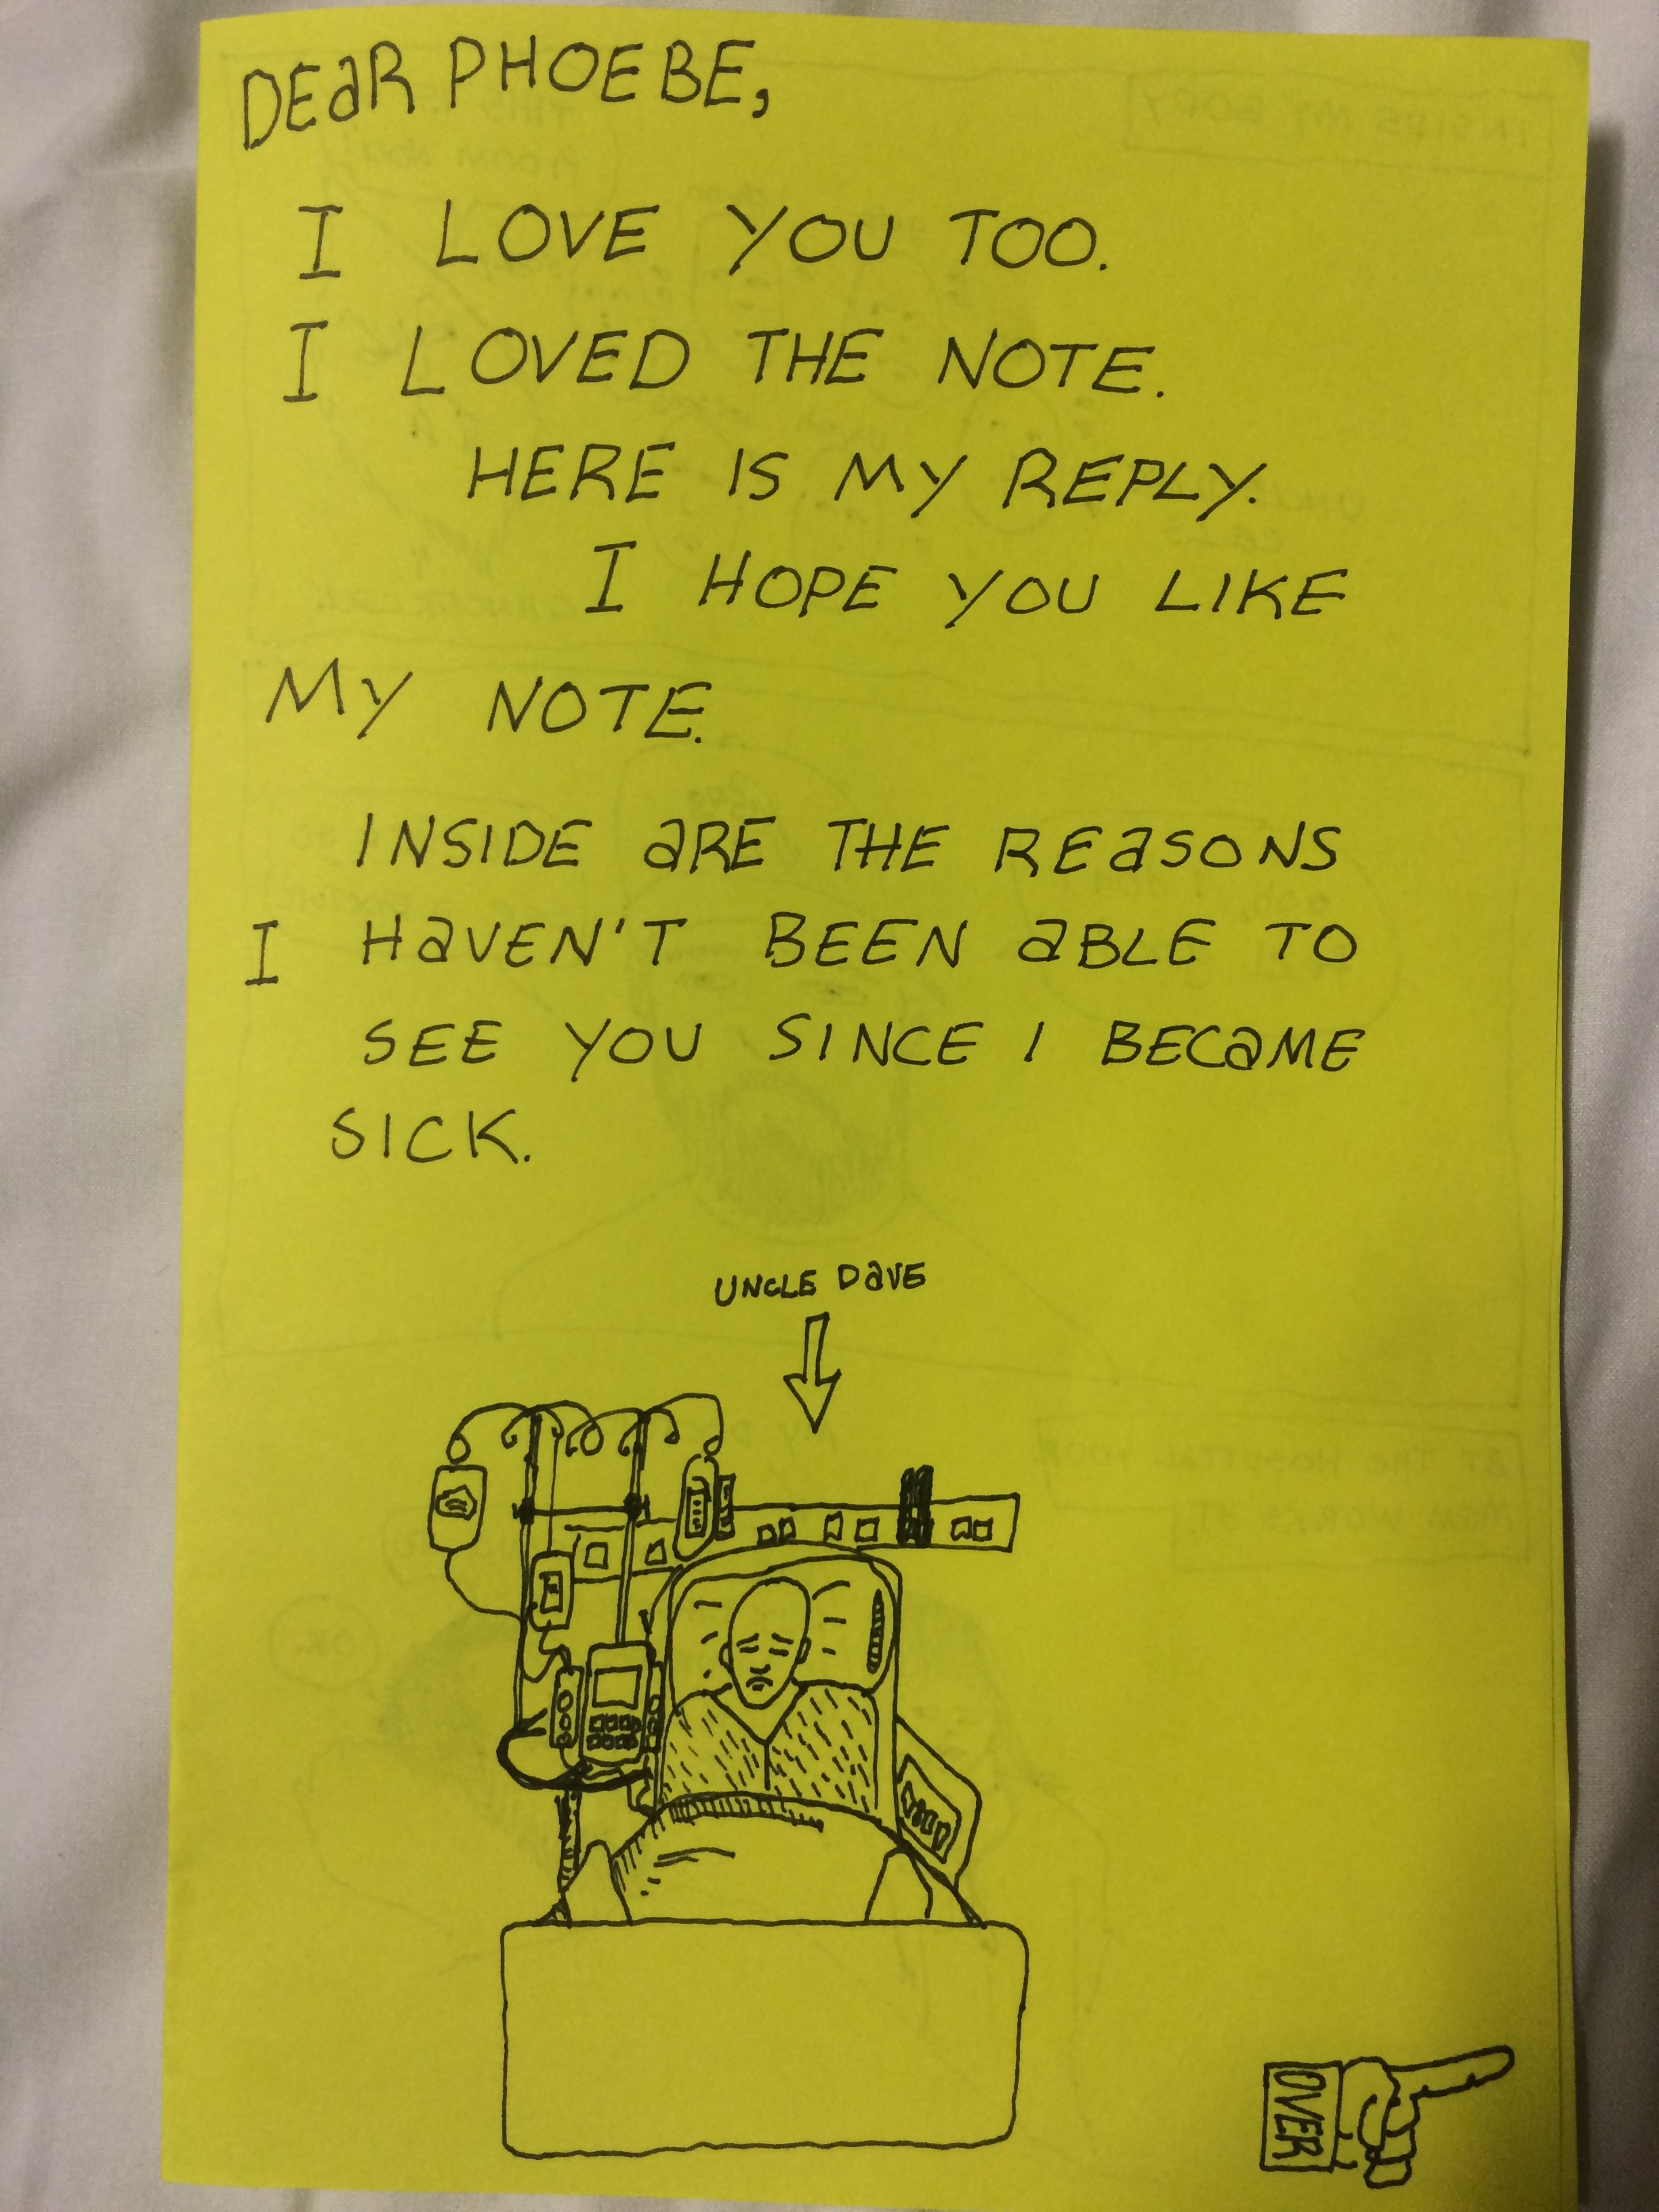 DEaR PHOEBE,
I LOVE YOU TOO.
I LOVED THE NOTE.
HERE IS MY REPLY.
I HOPE YOU LIKE
MY NOTE.
INSIDE aRE THE REaSONS
I HaVEN'T BEEN aBLE TO
SEE YOU SINCE I BECaME
SICK.
UNCLE DaVE
OVER